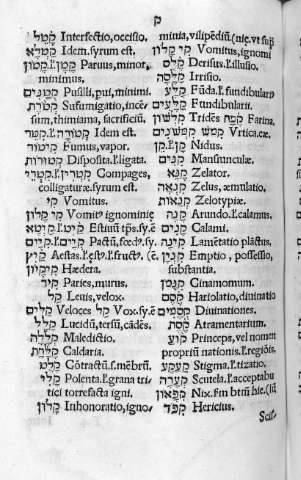 ק
קטל Interfectio, occisio.
קטלא Idem. syrum est.
קטן ł. קטון Paruus, minor,
minimus.
קטנים Pusili, pui, minimi.
קטרת Sufumigatio, incẽ
sum, thimiama, sacrificiũ
קטר ł. קטורה Idem est.
קיטור Fumus, vapor.
קטורות Disposita. ł. ligata.
קטרי ł. קטרין Compages,
colligaturæ. syrum est.
קי Vomitus.
קי קלון Vomitꝰ ignominię
קיטא ł. קיט Estiuũ tp̃s. sy. ẽ
קים ł. קיים Pactũ, fœdꝰ. sy.
קיץ Aestas. ł. ęstꝰ. ł. fructꝰ. (ẽ
קיקיון Hædera.
קיר Paries, murus.
קל Leuis, velox.
קלים Veloces קל Vox. sy ẽ
קלל Lucidũ, tersũ, cãdẽs.
קללה Maledictio.
קלחת Caldaria.
קלוט Cõtractũ. s. mẽbrũ.
קלי Polenta. ł. grana tri/
tici torrefacta igni.
קלון Inhonoratio, igno/
minia, vilipẽdiũ. (nię. vt sup̃
קי קלון Vomitus, ignomi
קלס Derisus. ł. illusio.
קלסה Irrisio.
קלע Fũda. ł. fundibulariꝰ
קלעים Fundibularii.
קלשון Tridẽs קמח Farina,
קמוש קמשונים Vrtica. cæ.
קן ł. קן Nidus.
קנים Mansiunculæ.
קנא Zelator.
קנאה Zelus, æmulatio.
קנאות Zelotypiæ.
קנה Arundo. ł. calamus.
קנים Calami.
קינה Lamẽtatio plãctus.
קנין Emptio, possessio,
substantia.
קנמון Cinamomum.
קסם Hariolatio, diuinatio
קסמים Diuinationes.
קסת Atramentarium.
קוע Princeps, vel nomen
propriũ nationis. ł. regiõis.
קעקע Stigma. ł. tizatio.
קערה Scutela. ł. acceptabu
קפאון Nix. ſm btm̃ hie. (lũ
קפד Hericius.